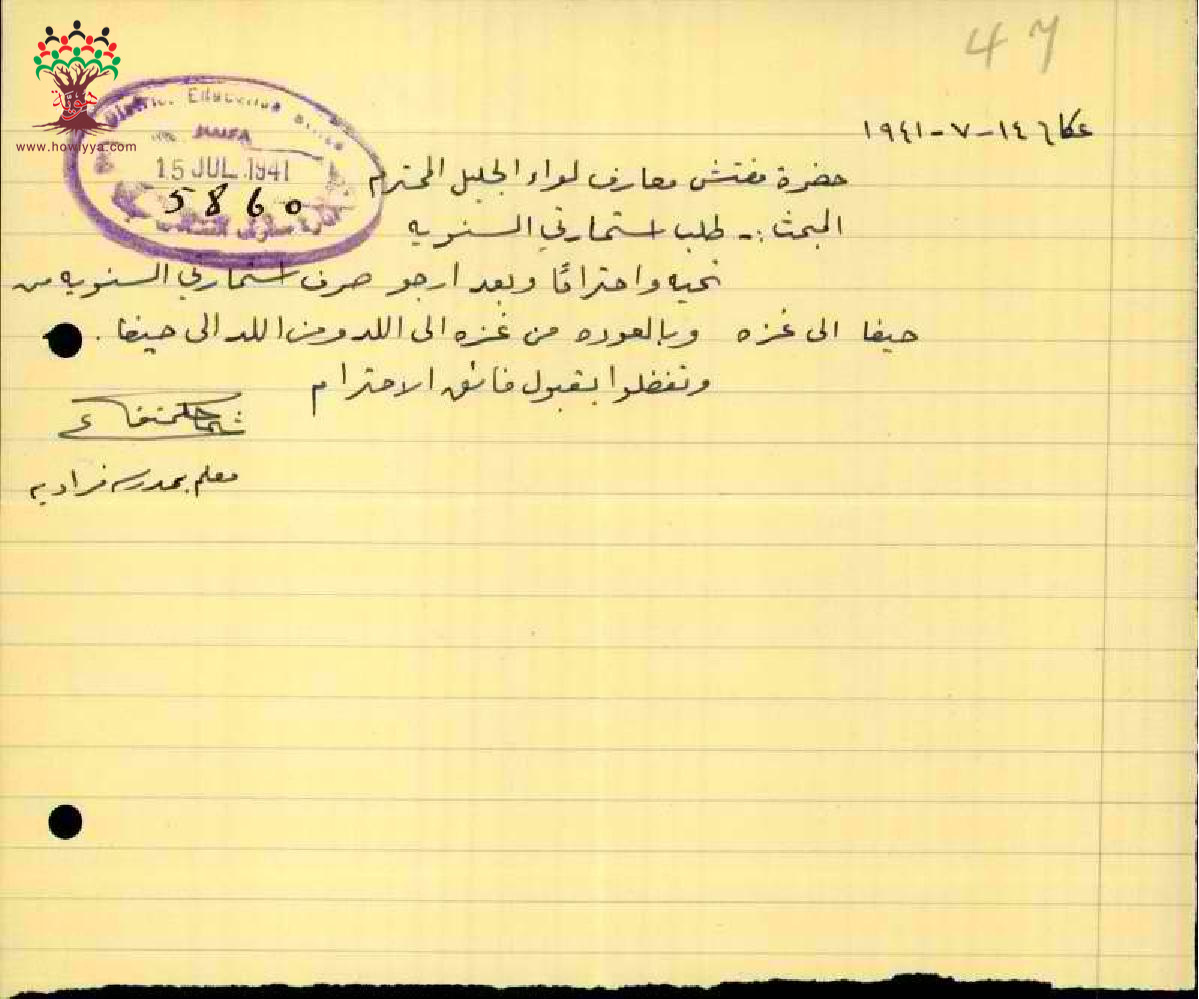 47
هوية
www.howiyya.com
District Education Office
HAIFA
15 JUL 1941
5860
عكا ١٤-٧-١٩٤١
حضرة مفتش معارف لواء الجليل المحترم
البحث :- طلب استمارتي السنويه
تحيه واحترامًا وبعد ارجو صرف استمارتي السنويه من
حيفا الى غزه وبالعوده من غزه الى اللد ومن اللد الى حيفا .
وتفضلوا بقبول فائق الاحترام
معلم بمدرسة فراديه